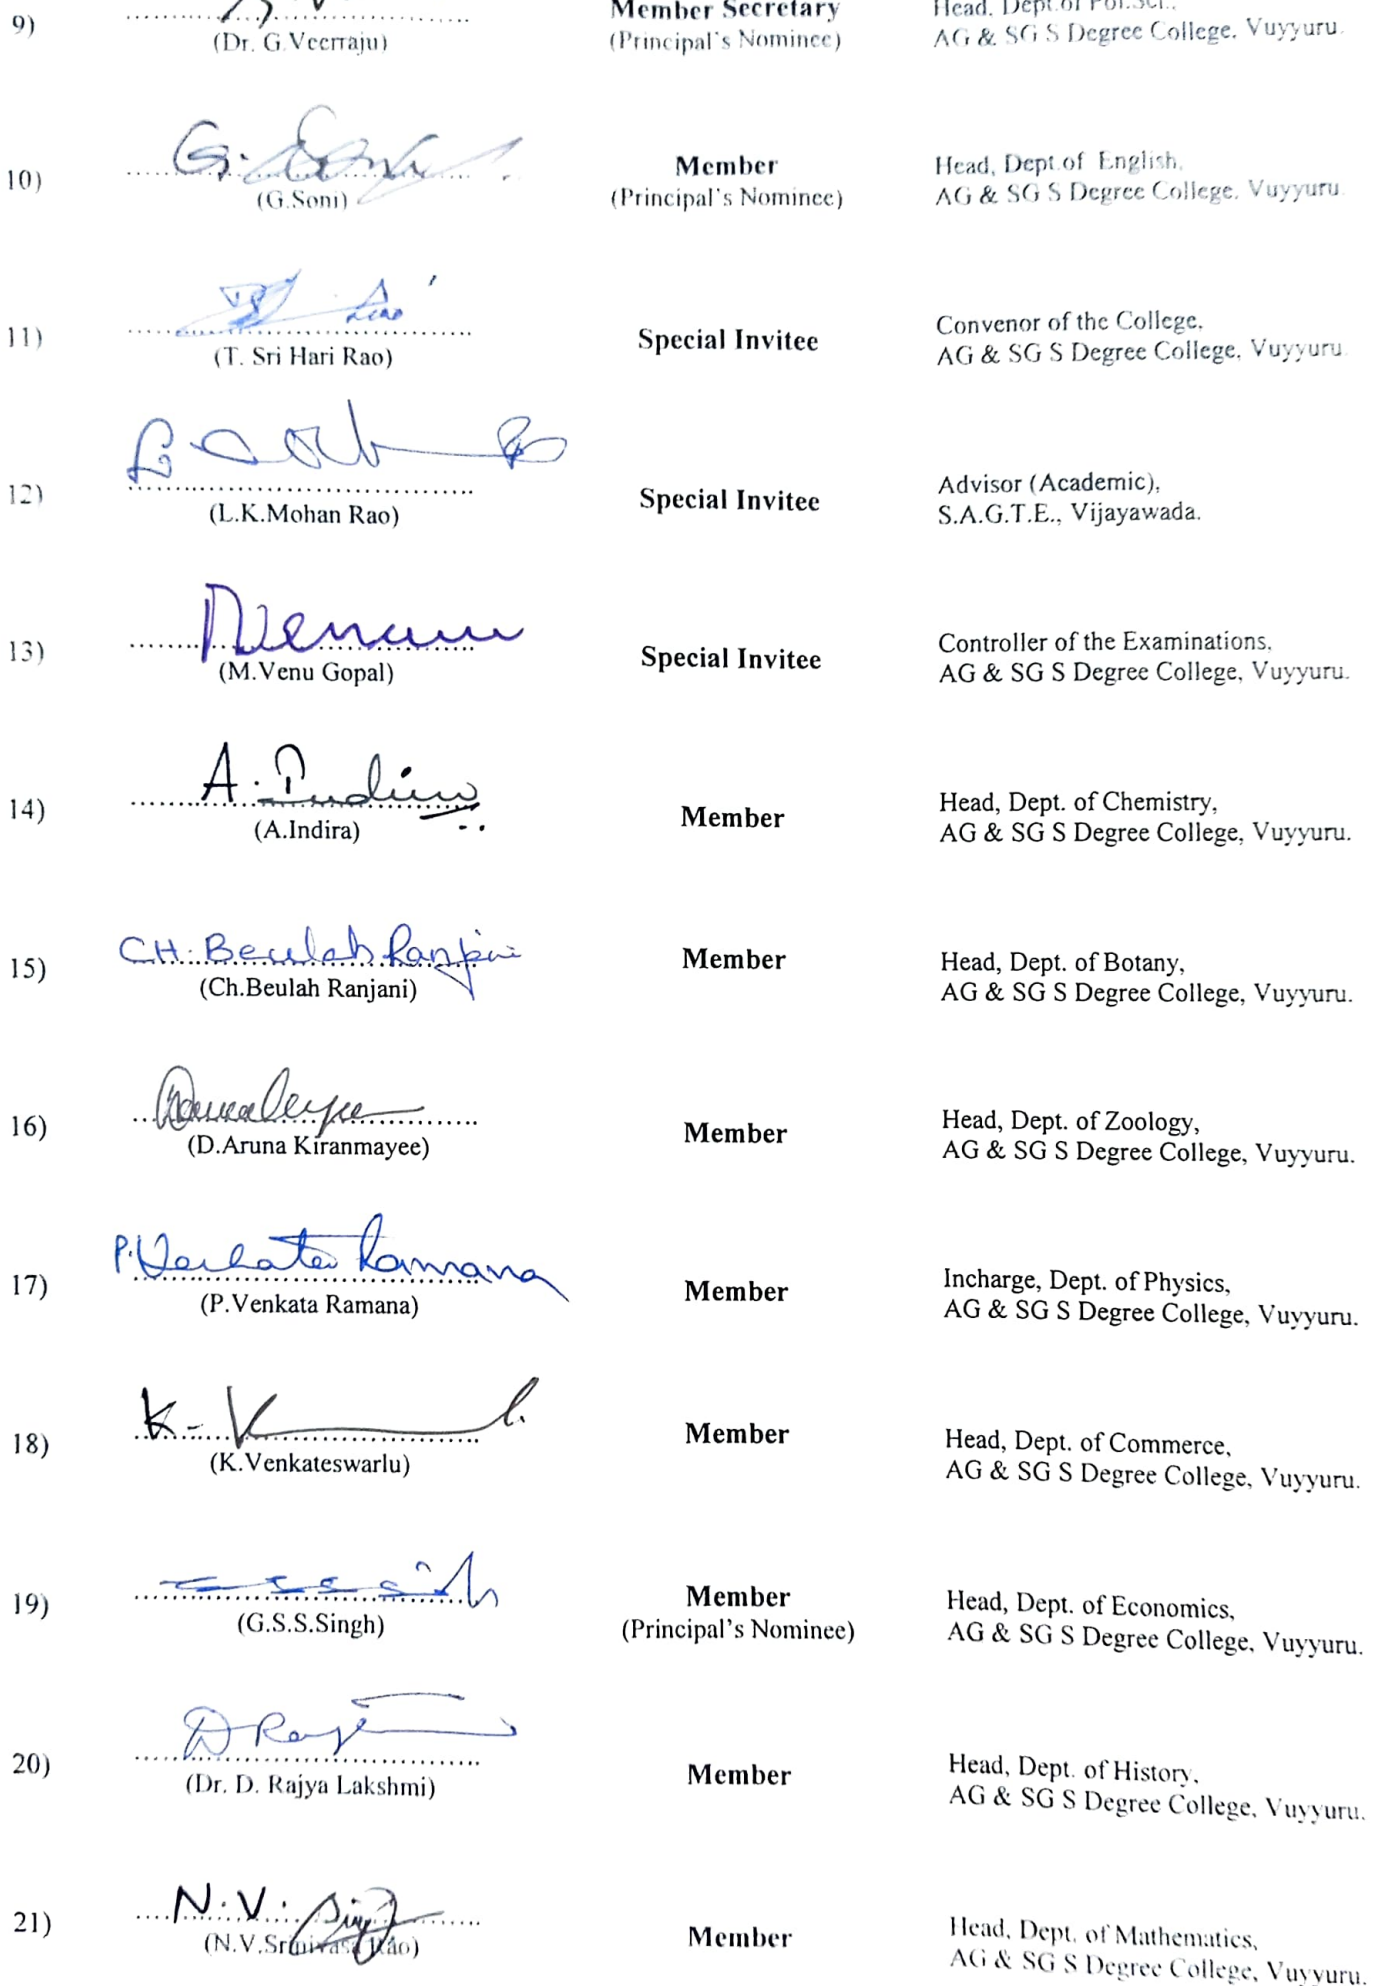 Member Secretary
Head. Dept.of Pol.Sci.,
9)
(Dr. G.Veerraju)
(Principal's Nominee)
AG & SG S Degree College. Vuyyuru.
G. Soni
10)
(G.Soni)
Member
(Principal's Nominee)
Head, Dept.of English,
AG & SG S Degree College. Vuyyuru.
11)
(T. Sri Hari Rao)
Special Invitee
Convenor of the College,
AG & SG S Degree College, Vuyyuru.
12)
(L.K.Mohan Rao)
Special Invitee
Advisor (Academic),
S.A.G.T.E., Vijayawada.
13)
(M.Venu Gopal)
Special Invitee
Controller of the Examinations,
AG & SG S Degree College, Vuyyuru.
A. Indira
14)
(A.Indira)
Member
Head, Dept. of Chemistry,
AG & SG S Degree College, Vuyyuru.
CH. Beulah Ranjani
15)
(Ch.Beulah Ranjani)
Member
Head, Dept. of Botany,
AG & SG S Degree College, Vuyyuru.
16)
(D.Aruna Kiranmayee)
Member
Head, Dept. of Zoology,
AG & SG S Degree College, Vuyyuru.
P. Venkata Ramana
17)
(P.Venkata Ramana)
Member
Incharge, Dept. of Physics,
AG & SG S Degree College, Vuyyuru.
18)
(K.Venkateswarlu)
Member
Head, Dept. of Commerce,
AG & SG S Degree College, Vuyyuru.
19)
(G.S.S.Singh)
Member
(Principal's Nominee)
Head, Dept. of Economics,
AG & SG S Degree College, Vuyyuru.
20)
(Dr. D. Rajya Lakshmi)
Member
Head, Dept. of History,
AG & SG S Degree College, Vuyyuru.
N.V.
21)
(N.V.Srinivasa Rao)
Member
Head, Dept. of Mathematics,
AG & SG S Degree College, Vuyyuru.